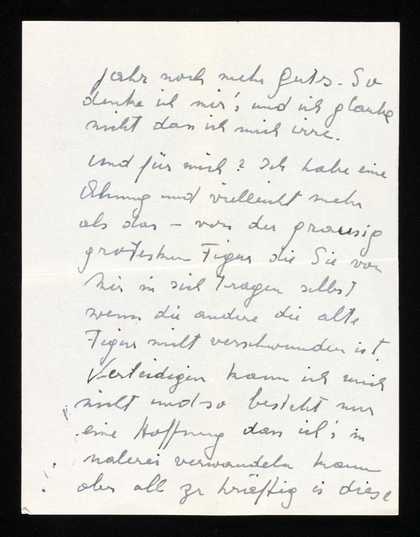 Jahr noch mehr guts. So
denke ich mir's und ich glaube
nicht dan ich mich irre.
Und für mich? Ich habe eine
Ahnung und vielleicht mehr
als das – von der grausig
grotesken Figur die Sie von
mir in sich tragen selbst
wenn die andere die alte
Figur nicht verschwunden ist.
Verteidigen kann ich mich
nicht und so besteht nur
eine Hoffnung dan ich's in
malerei verwandeln kann
aber all zu kräftig is diese